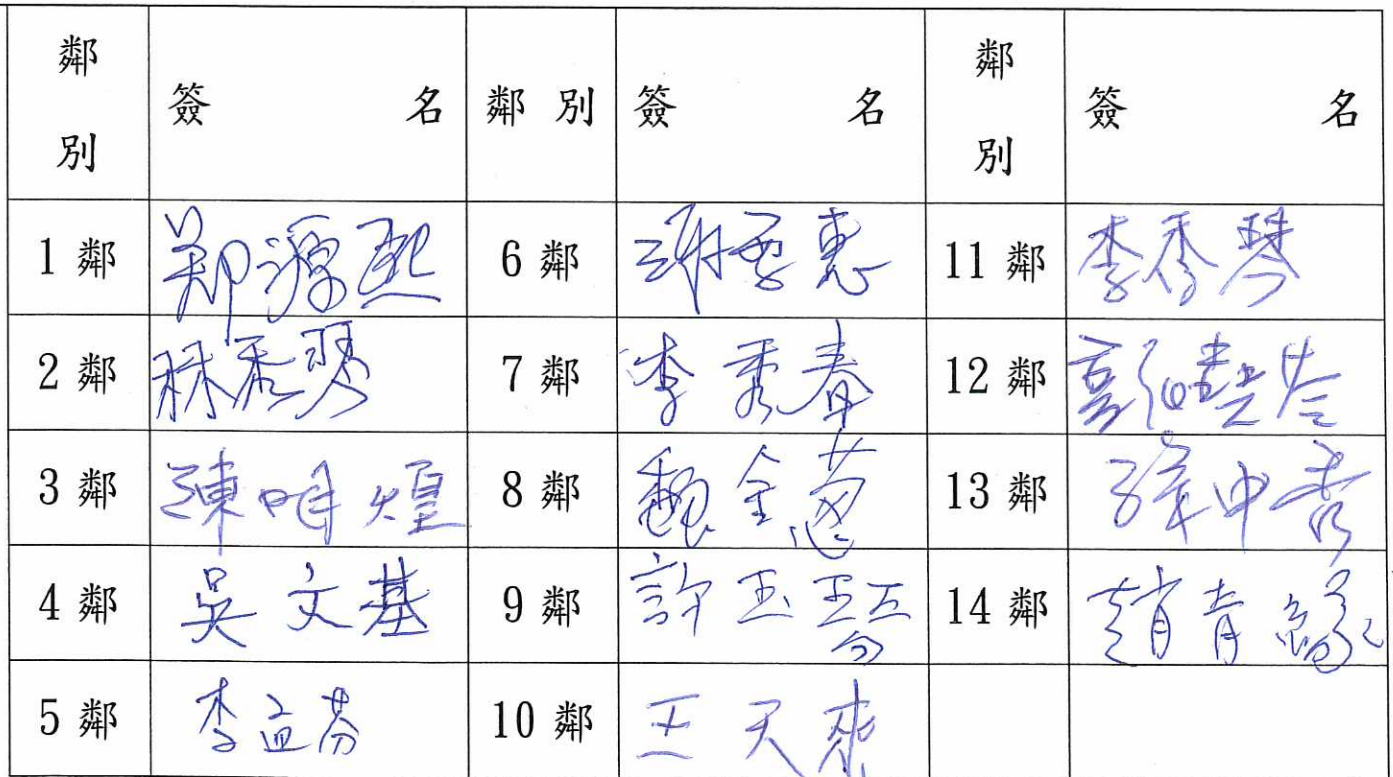 鄰別 簽名 鄰別 簽名 鄰別 簽名
1鄰 鄭源熙 6鄰 謝季惠 11鄰 李秀琴
2鄰 林秀琴 7鄰 李秀春 12鄰
3鄰 陳明煌 8鄰 魏金蔥 13鄰
4鄰 吳文基 9鄰 許玉琴 14鄰 趙青緣
5鄰 李孟芬 10鄰 王天來